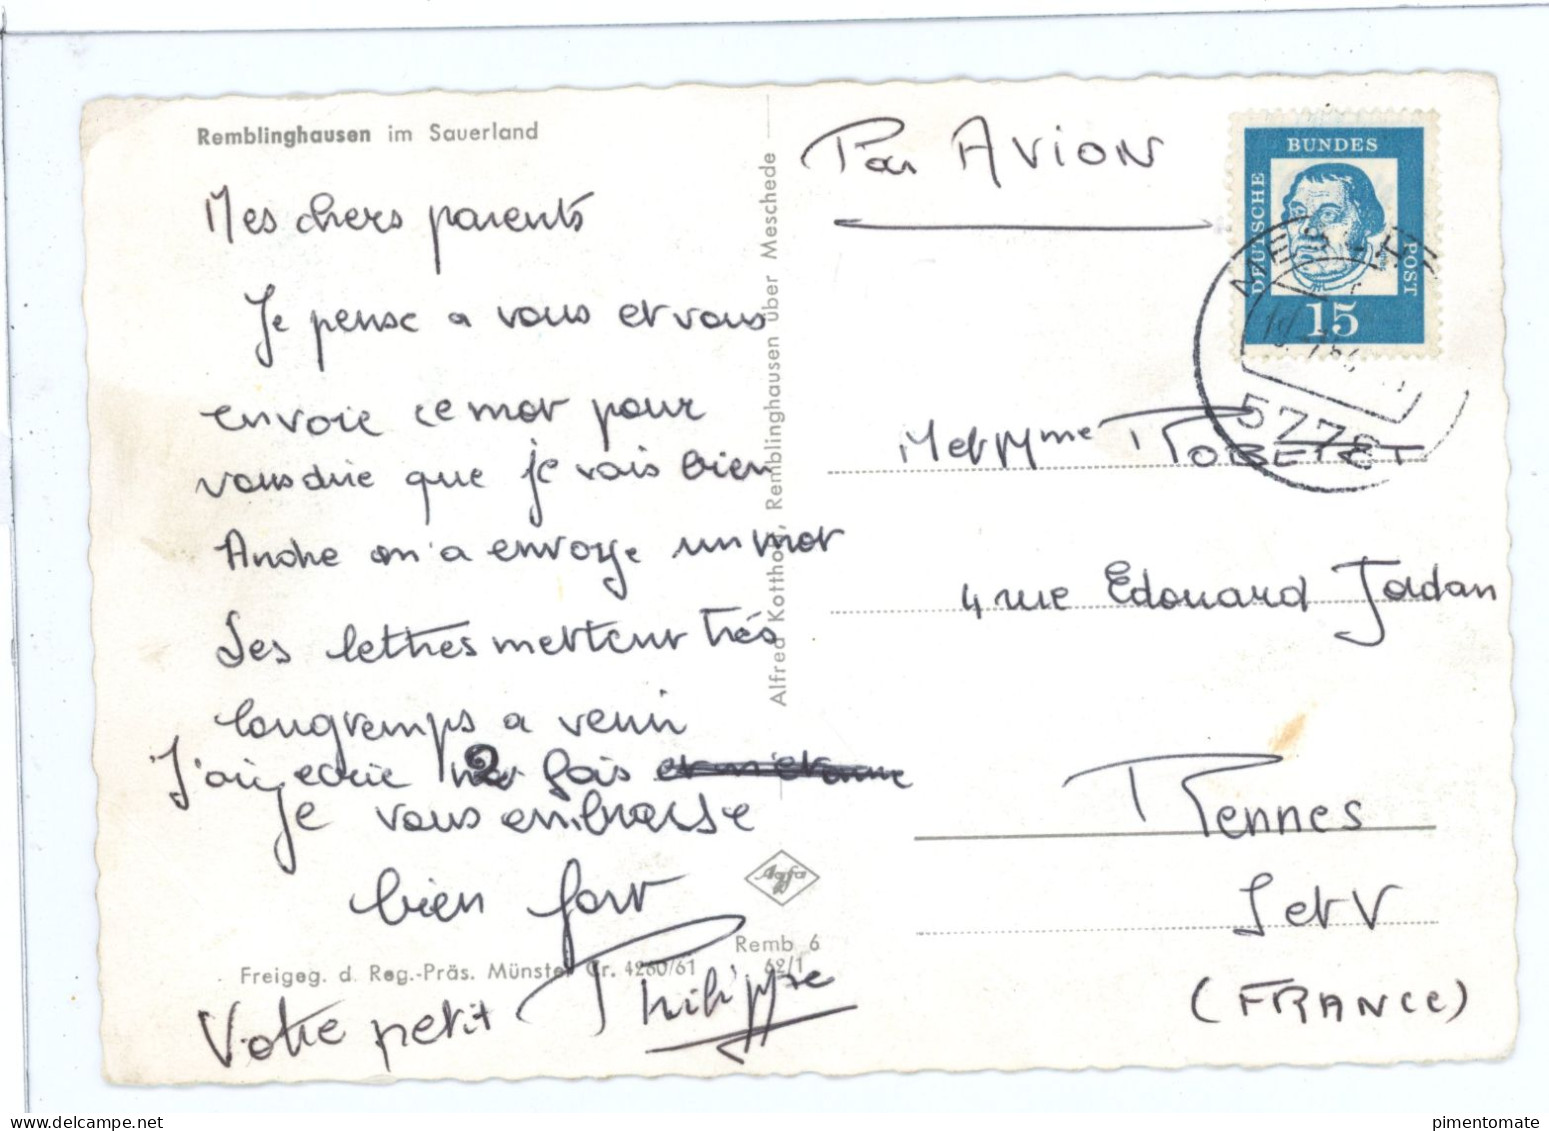 Remblinghausen im Sauerland
Mes chers parents
Je pense a vous et vous
envoie ce mot pour
vous dire que je vais bien
Andre m'a envoye un mot
Les lettres mettent très
longtemps a venir
J'ai ecrie 2 fois
Je vous embrasse
bien fort
Votre petit Philippe
Freigeg. d. Reg.-Präs. Münster Cr. 4260/61
Remb 6
62/1
Agfa
Alfred Kotthoff, Remblinghausen über Meschede
Par AVION
DEUTSCHE BUNDES POST
15
5778
M et Mme ROBERT
4 rue Edouard Jordan
Rennes
I et V
(FRANCE)
delcampe.net
pimentomate